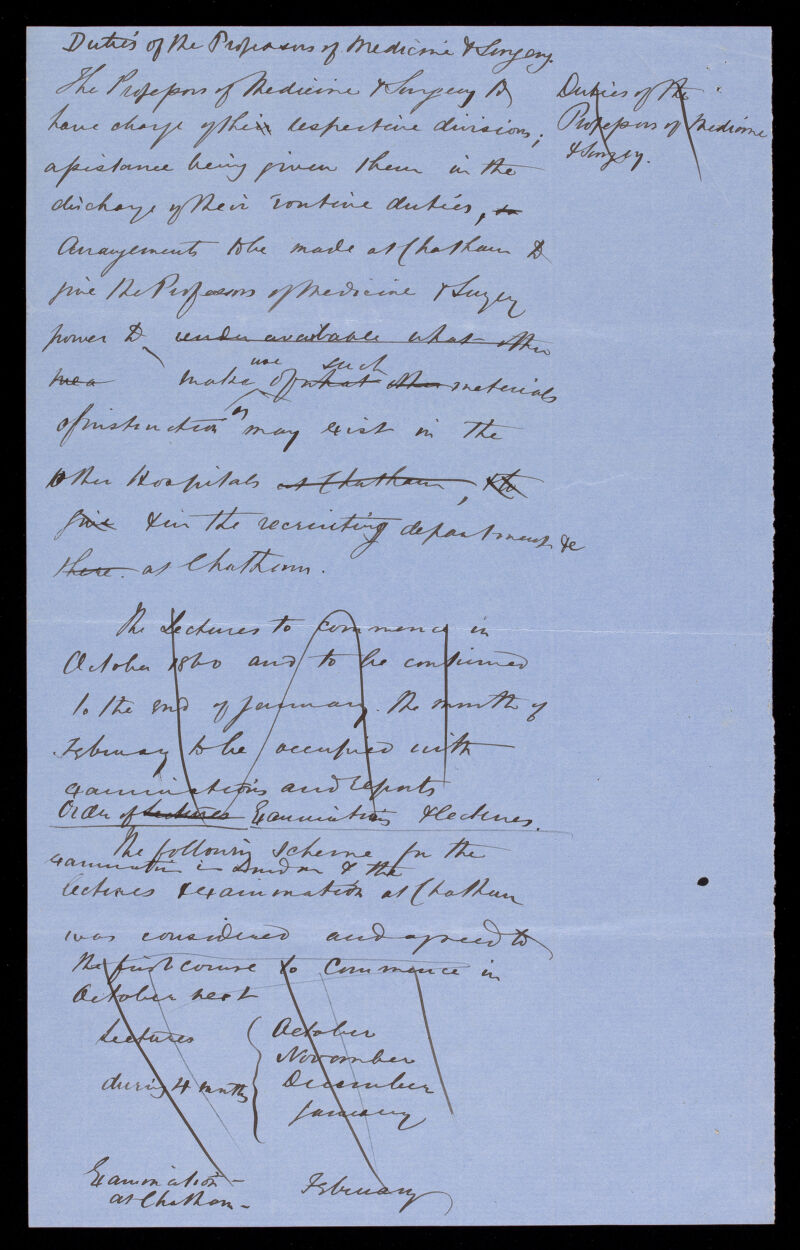 Duties of the Professors of Medicine & Surgery.
The Professors of Medicine & Surgery to
have charge of their respective divisions;
assistance being given them in the
discharge of their routine duties, to
Arrangements to be made at Chatham to
give the Professors of Medicine & Surgery
power to render available what other
mea make use of what such other materials
of instruction as may exist in the
other Hospitals at Chatham, & to
give & in the recruiting department &c
there at Chatham.
Duties of the
Professors of Medicine
& Surgery.
The Lectures to commence in
October 1860 and to be continued
to the end of January. The month of
February to be occupied with
examinations and reports
Order of Lectures Examinations & lectures.
The following scheme for the
examination in London & the
lectures & examination at Chatham
was considered and agreed to
the first course to commence in
October next
Lectures
during 4 months
October
November
December
January
Examination
at Chatham
February